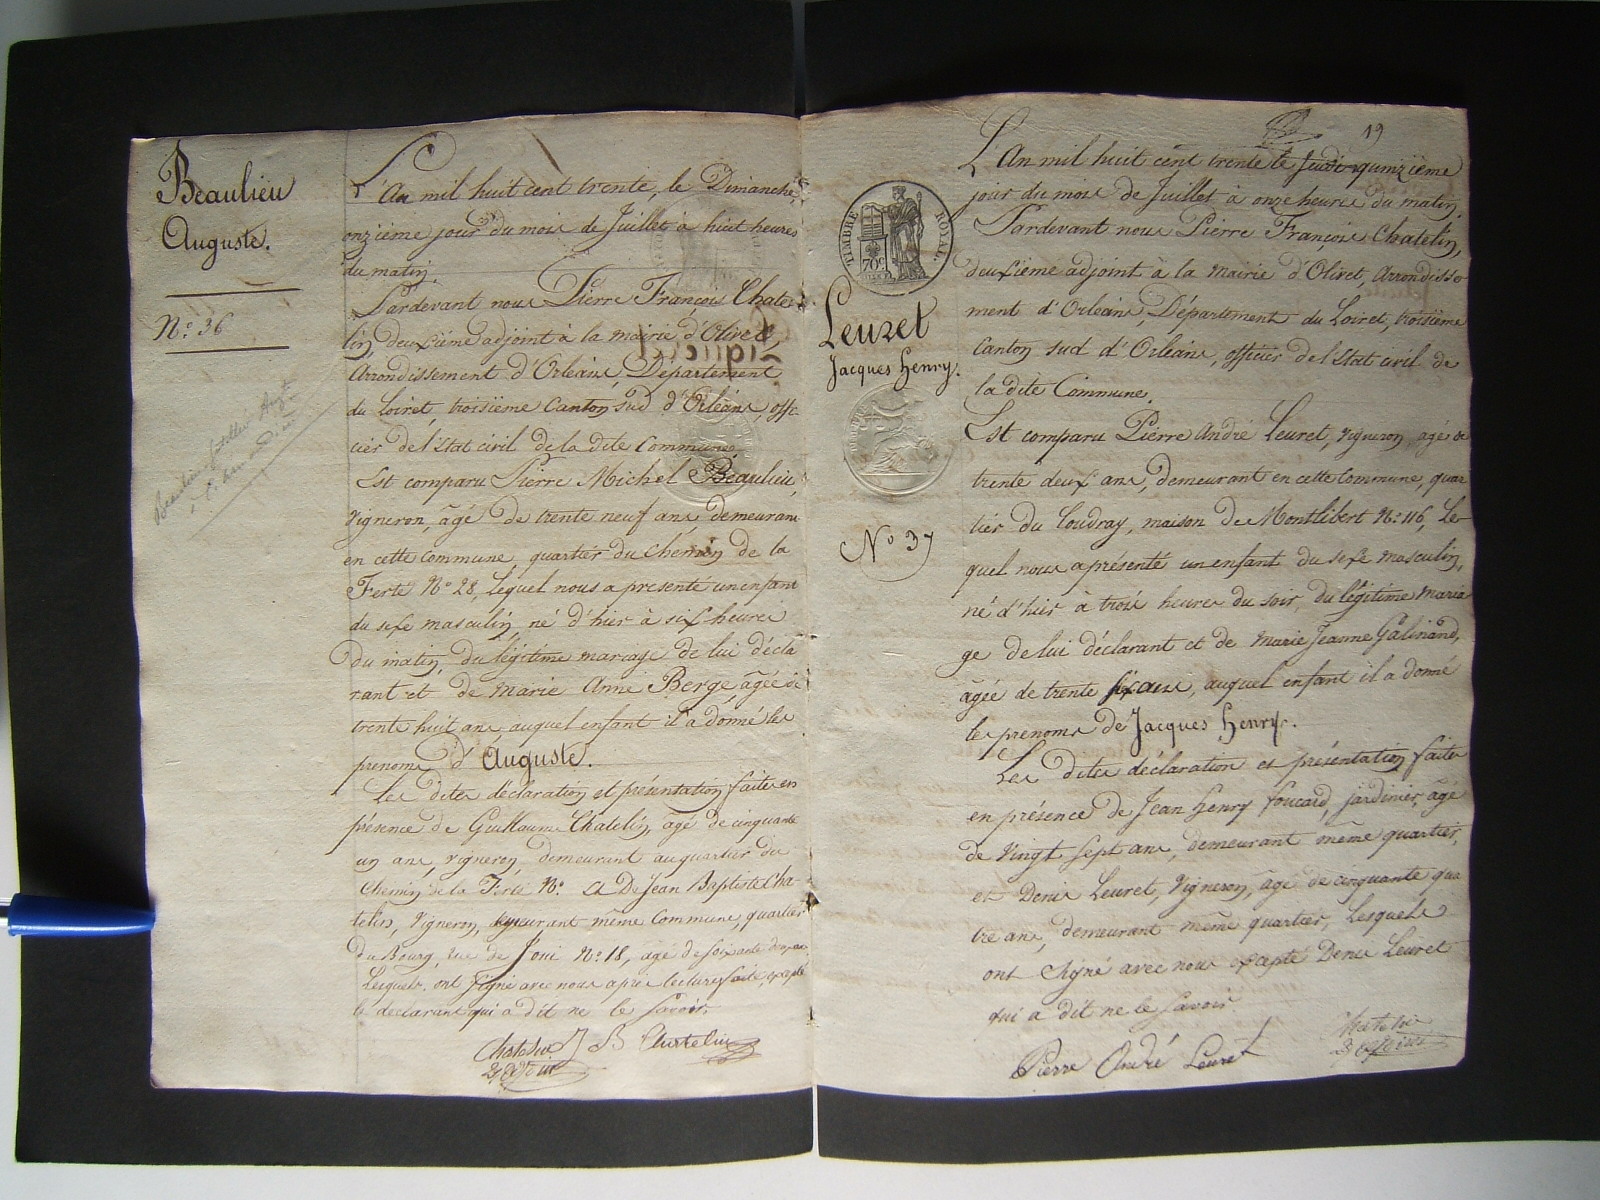 Beaulieu
Auguste.
N° 36
L'An mil huit cent trente, le Dimanche,
onzieme jour du mois de Juillet à huit heures
du matin.
Pardevant nous Pierre François Chate-
lin, deuxième adjoint à la mairie d'Olivet,
Arrondissement d'Orléans, Département
du Loiret, troisième Canton sud d'Orléans, offi-
cier de l'Etat civil de la dite Commune
Est comparu Pierre Michel Beaulieu,
vigneron, âgé de trente neuf ans, demeurant
en cette commune, quartier du Chemin de la
Ferté N° 28, lequel nous a présenté un enfant
du sexe masculin, né d'hier à six heures
du matin, du légitime mariage de lui décla
rant et de Marie Anne Berge, âgée de
trente huit ans, auquel enfant il a donné les
prenoms d'Auguste.
Les dites déclaration et présentation faites en
présence de Guillaume Chatelin, âgé de cinquante
un ans, vigneron, demeurant au quartier du
Chemin de la Ferté N° & De Jean Baptiste Cha-
telin, Vigneron, demeurant même Commune, quartier
du Bourg, rue de Joui N° 18, âgé de soixante deux ans
Lesquels ont signé avec nous après lecture faite, excepté
le declarant qui a dit ne le savoir.
Chatelin J B Chatelin
19
TIMBRE ROYAL
70c
Leuret
Jacques Henry.
N° 37
L'An mil huit cent trente le Jeudi quinzième
jour du mois de Juillet à onze heures du matin.
Pardevant nous Pierre François Chatelin,
deuxième adjoint à la mairie d'Olivet, Arrondisse
ment d'Orléans, Département du Loiret, troisième
Canton sud d'Orléans, officier de l'Etat civil de
la dite Commune.
Est comparu Pierre André Leuret, vigneron, agé de
trente deux ans, demeurant en cette Commune, quar
tier du Coudray, maison de Montlibert N° 116, Le-
quel nous a présenté un enfant du sexe masculin,
né d'hier à trois heures du soir, du légitime maria
ge de lui déclarant et de Marie Jeanne Galinand,
âgée de trente six ans, auquel enfant il a donné
les prenoms de Jacques Henry.
Les dites déclaration et présentation faites
en présence de Jean Henry Foucard, jardinier, âgé
de vingt sept ans, demeurant même quartier,
et Denis Leuret, Vigneron, âgé de cinquante qua
tre ans, demeurant même quartier, Lesquels
ont signé avec nous excepté Denis Leuret
qui a dit ne le savoir.
Pierre André Leuret
Chatelin